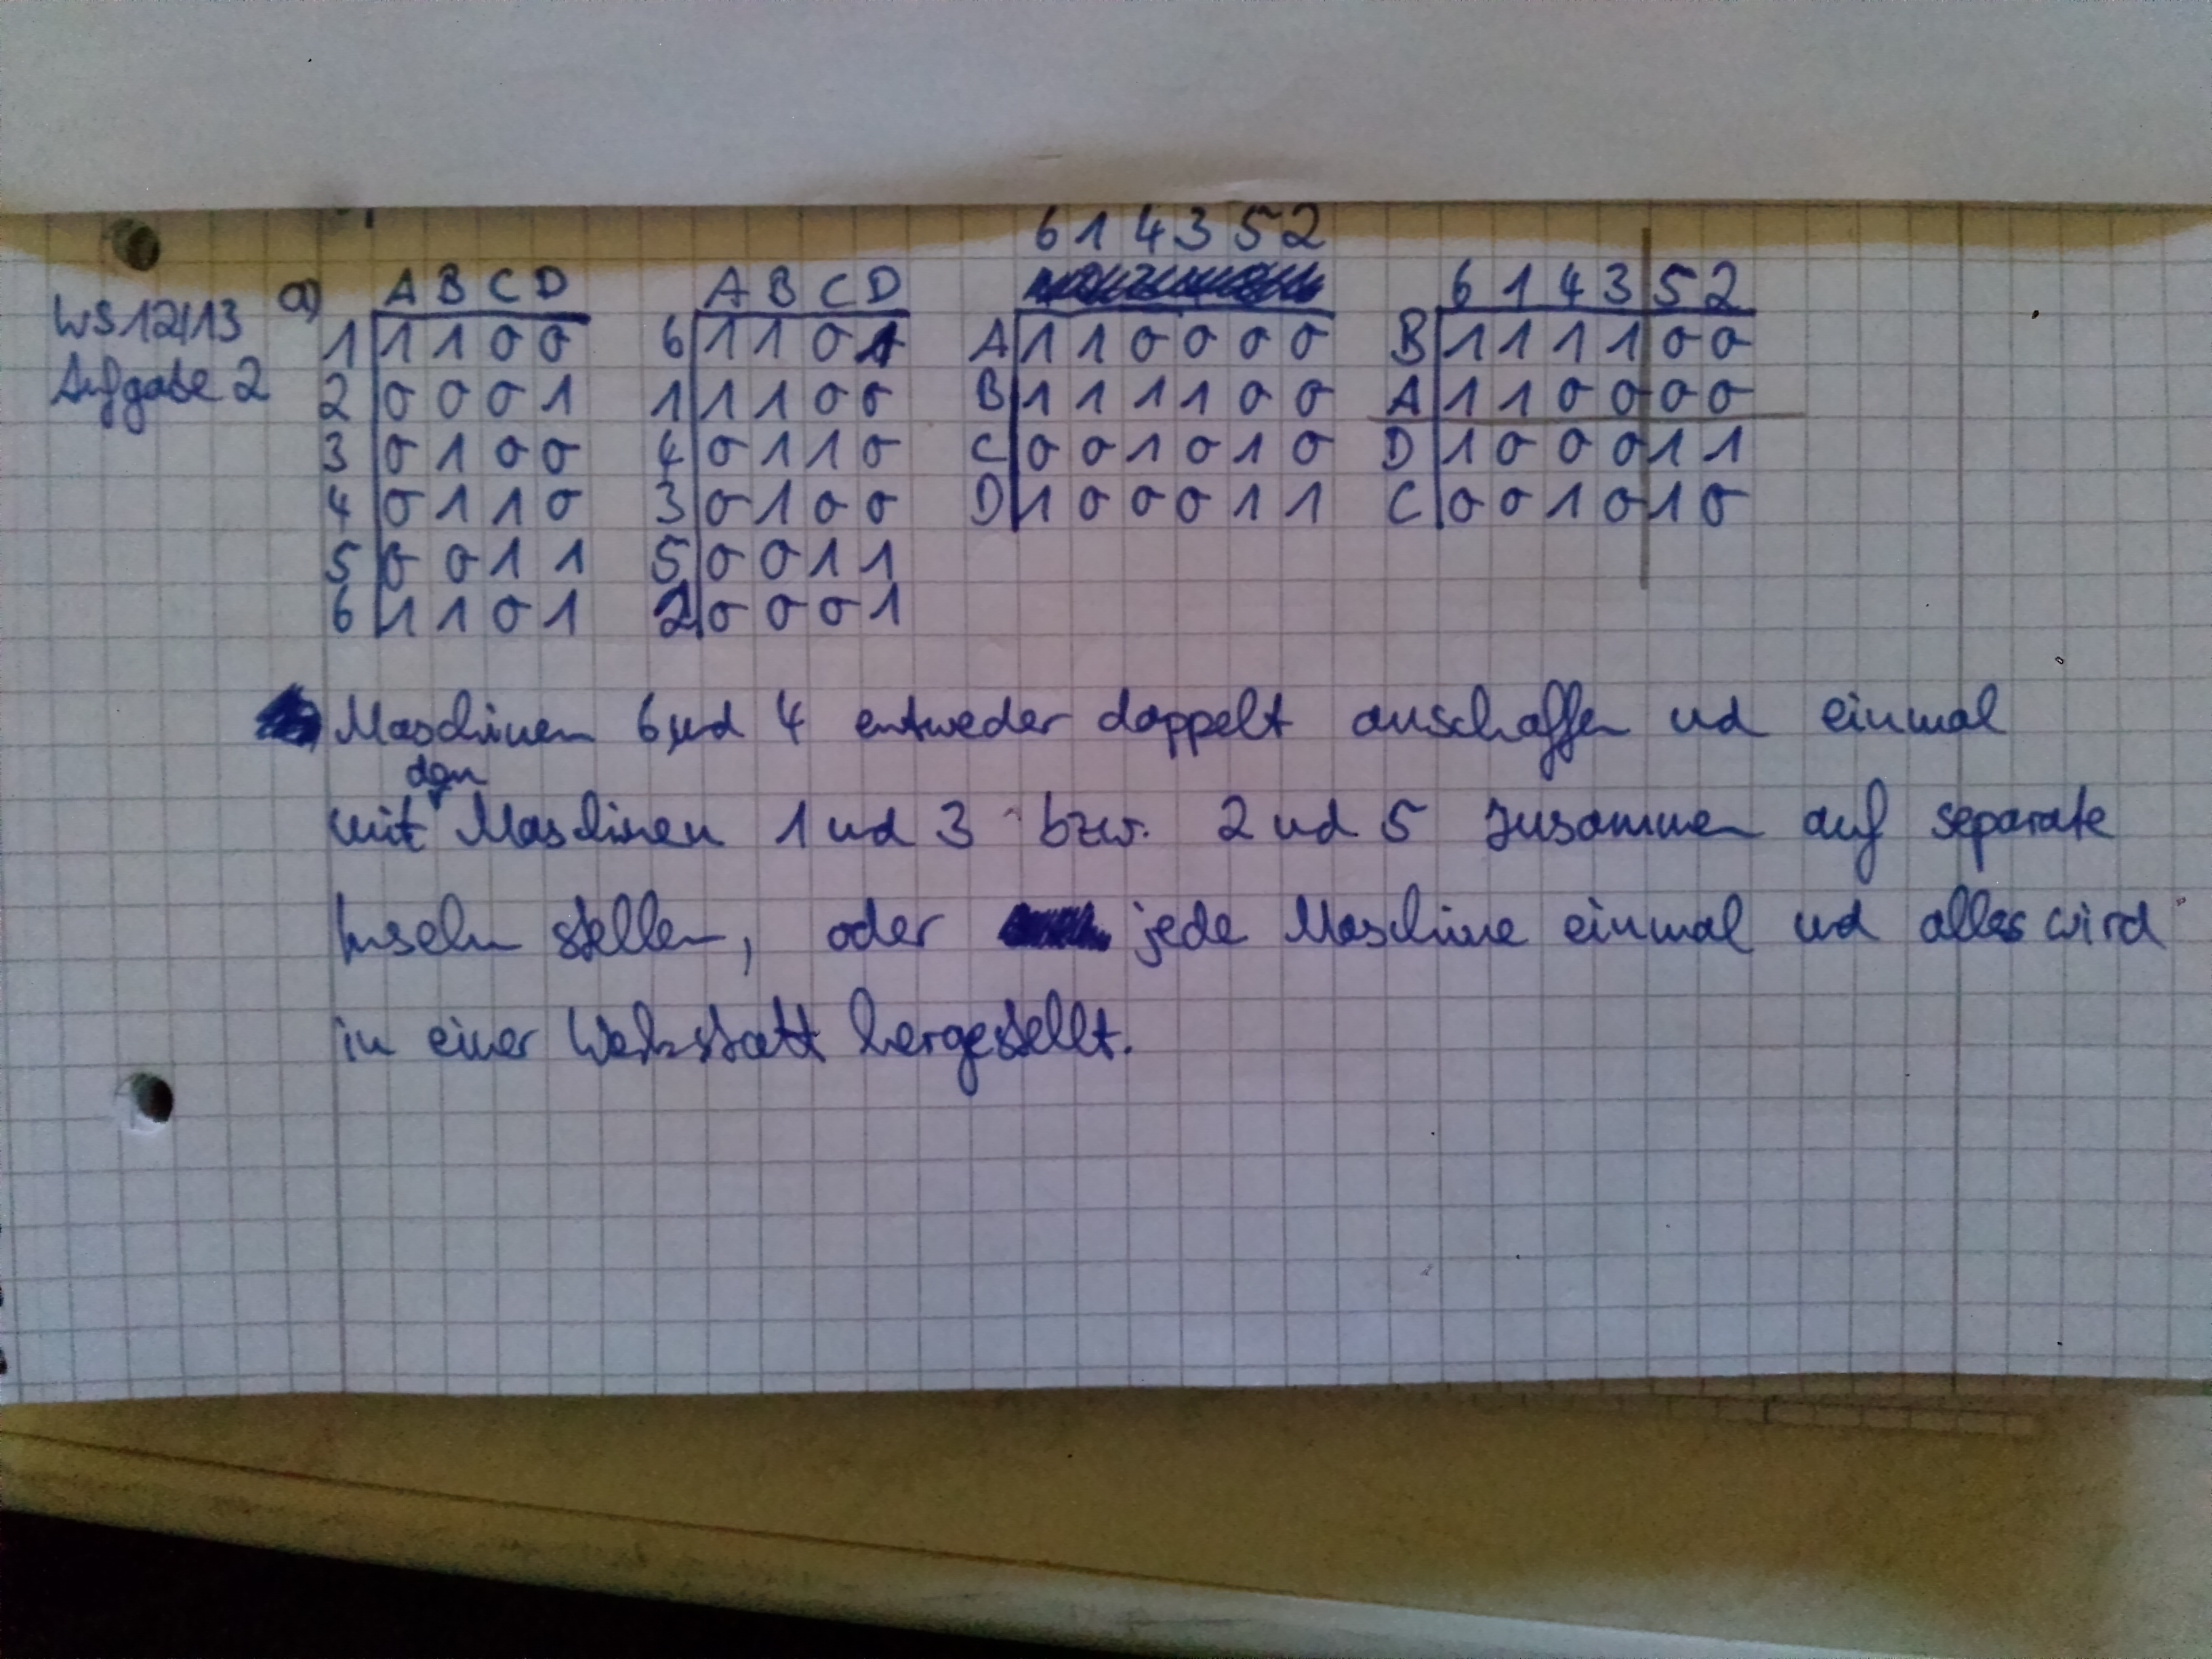 WS12/13
Aufgabe 2
a)
A B C D
1 1 1 0 0
2 0 0 0 1
3 0 1 0 0
4 0 1 1 0
5 0 0 1 1
6 1 1 0 1
A B C D
6 1 1 0 1
1 1 1 0 0
4 0 1 1 0
3 0 1 0 0
5 0 0 1 1
2 0 0 0 1
6 1 4 3 5 2
A 1 1 0 0 0 0
B 1 1 1 1 0 0
C 0 0 1 0 1 0
D 1 0 0 0 1 1
6 1 4 3 5 2
B 1 1 1 1 0 0
A 1 1 0 0 0 0
D 1 0 0 0 1 1
C 0 0 1 0 1 0
Maschinen 6 und 4 entweder doppelt anschaffen und einmal
mit den Maschinen 1 und 3 bzw. 2 und 5 zusammen auf separate
Inseln stellen, oder jede Maschine einmal und alles wird
in einer Werkstatt hergestellt.